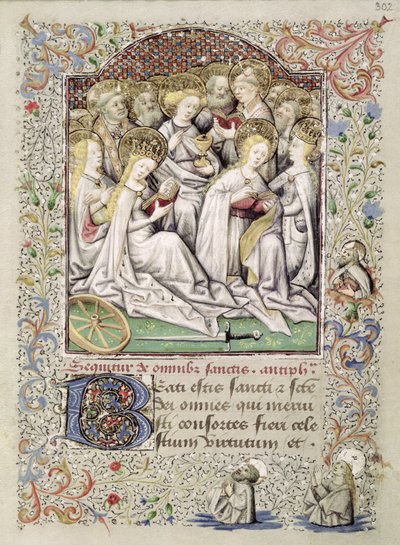 302
Sequitur de omnibz sanctis. antiph'
Beati estis sancti z scte
dei omnes qui meru
isti consortes fieri cele
stium virtutum et.